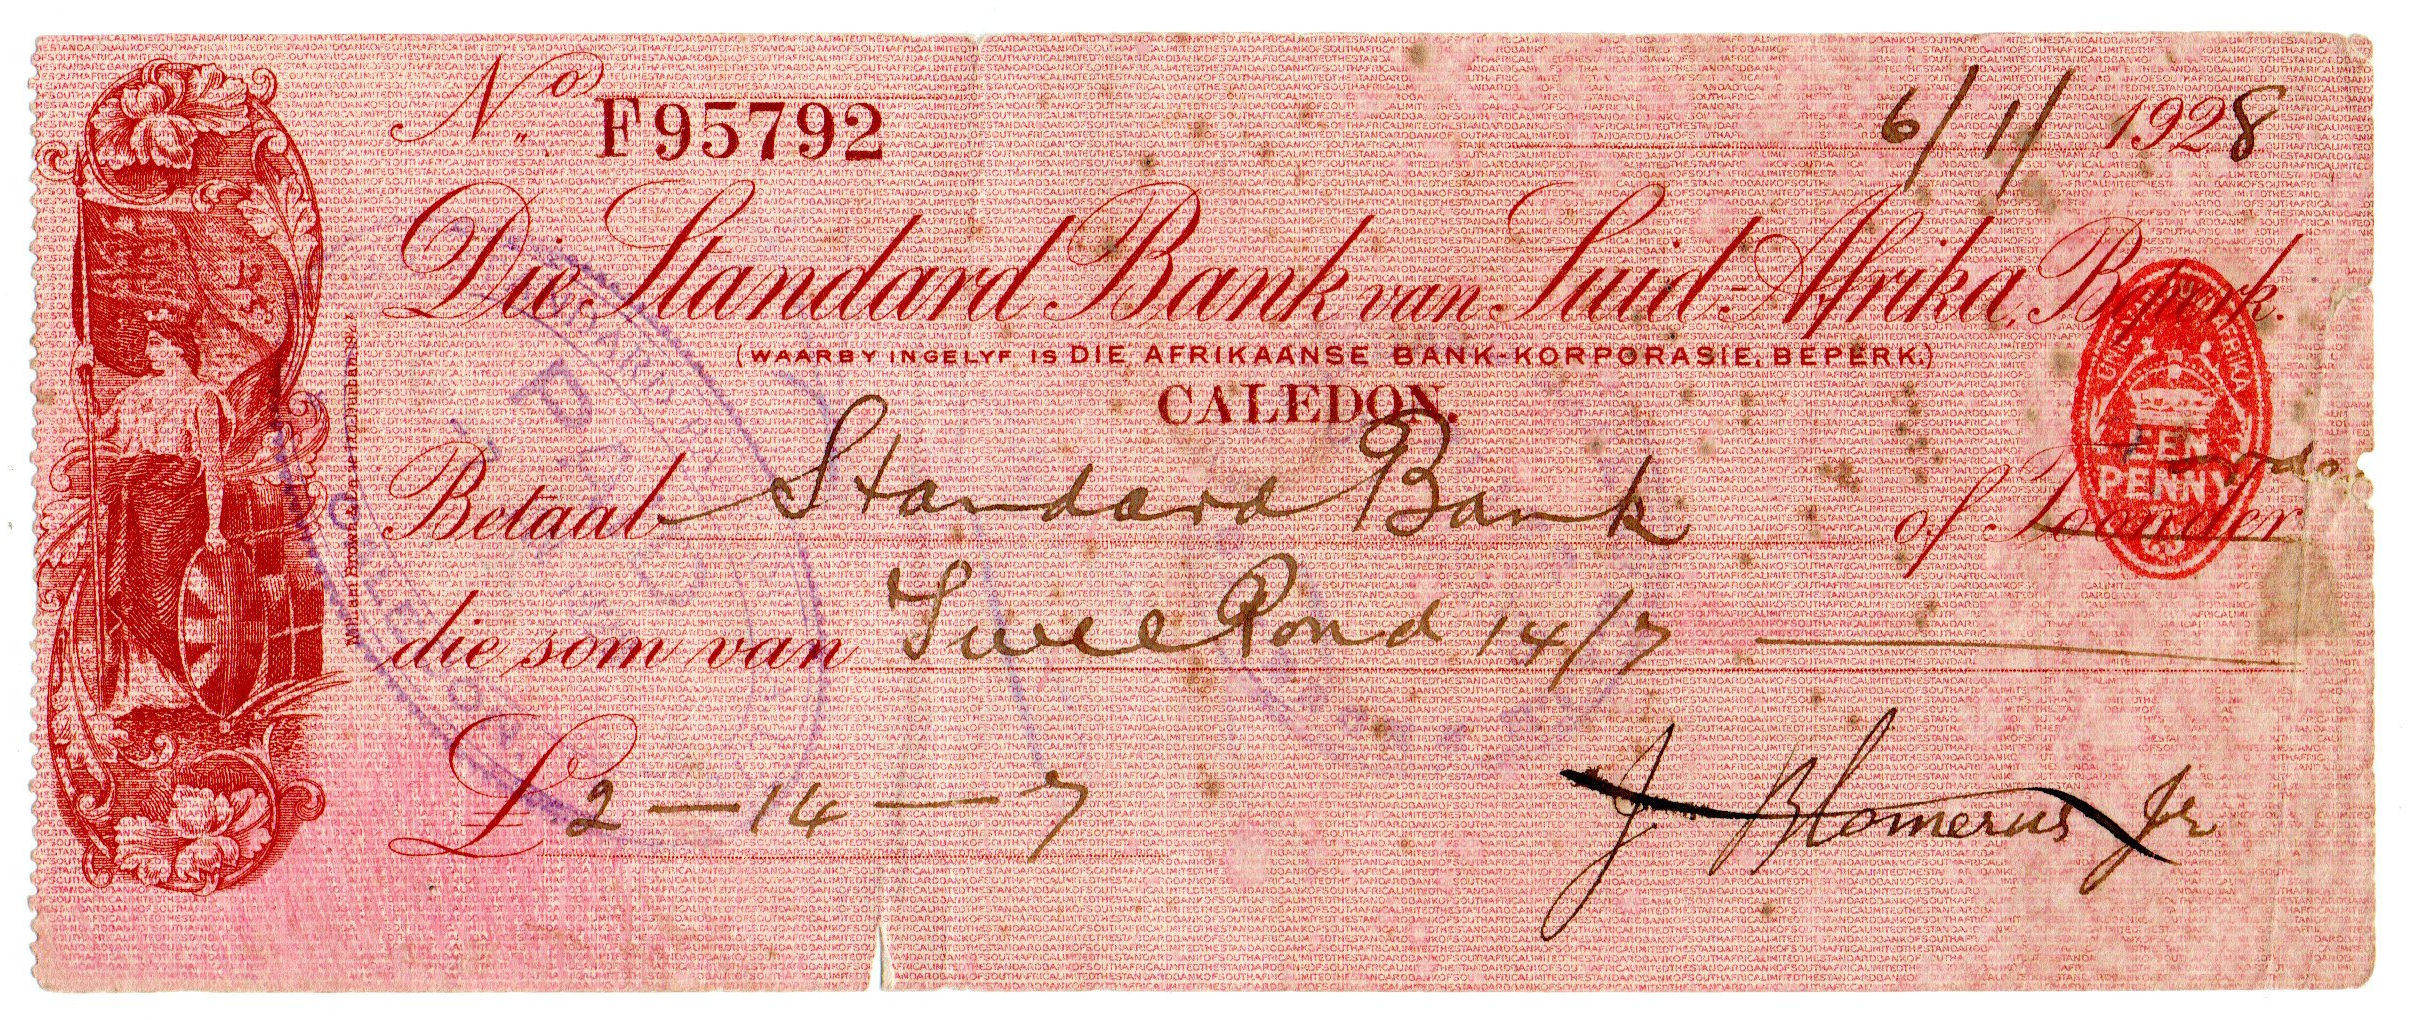 No. F95792
6/1/ 1928
Die Standard Bank van Suid-Afrika, Beperk.
(WAARBY INGELYF IS DIE AFRIKAANSE BANK-KORPORASIE, BEPERK.)
CALEDON.
EEN
PENNY
Betaal Standard Bank of Toonder
die som van Twee Pond 14/7
£ 2 — 14 — 7
J Blomerus Jr